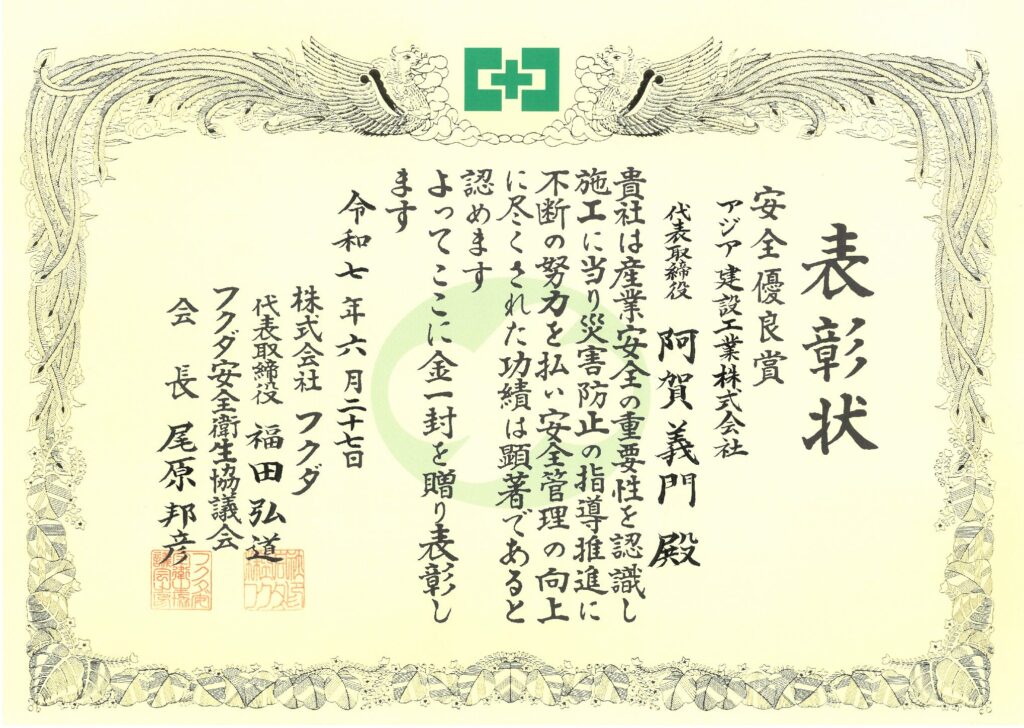 表彰状
安全優良賞
アジア建設工業株式会社
代表取締役 阿賀義門殿
貴社は産業安全の重要性を認識し
施工に当り災害防止の指導推進に
不断の努力を払い安全管理の向上
に尽くされた功績は顕著であると
認めます
よってここに金一封を贈り表彰し
ます
令和七年六月二十七日
株式会社フクダ
代表取締役 福田弘道
フクダ安全衛生協議会
会長 尾原邦彦